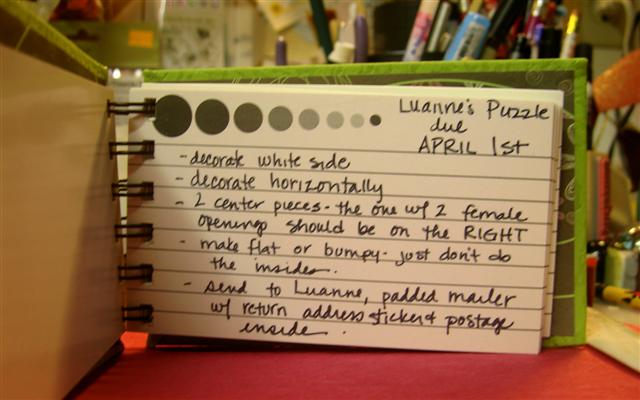 Luanne's Puzzle
due
APRIL 1st
- decorate white side
- decorate horizontally
- 2 center pieces - the one w/ 2 female
openings should be on the RIGHT
- make flat or bumpy - just don't do
the insides.
- send to Luanne, padded mailer
w/ return address sticker & postage
inside.